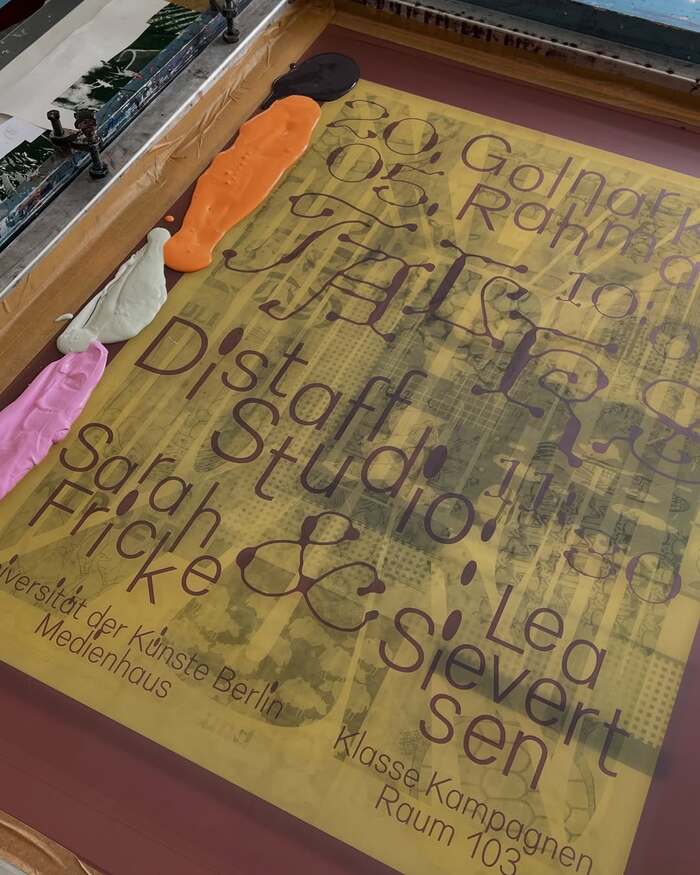 20.
05.
Golnark
Rahma
Distaff
Studio
11:30
Sarah
Fricke
&
Lea
Sievert
sen
iversität der Künste Berlin
Medienhaus
Klasse Kampagnen
Raum 103